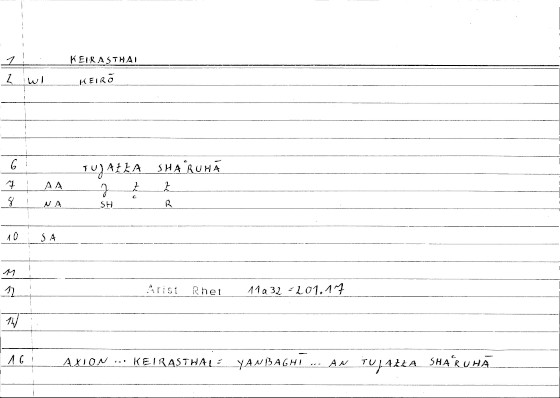 1 KEIRASTHAI
2 WI KEIRŌ
6 TUJAZZA SHAʿRUHĀ
7 AA J Z Z
8 NA SH ʿ R
10 SA
11
12 Arist Rhet 11a32 = 201.17
14
16 AXION ... KEIRASTHAI = YANBAGHĪ ... AN TUJAZZA SHAʿRUHĀ